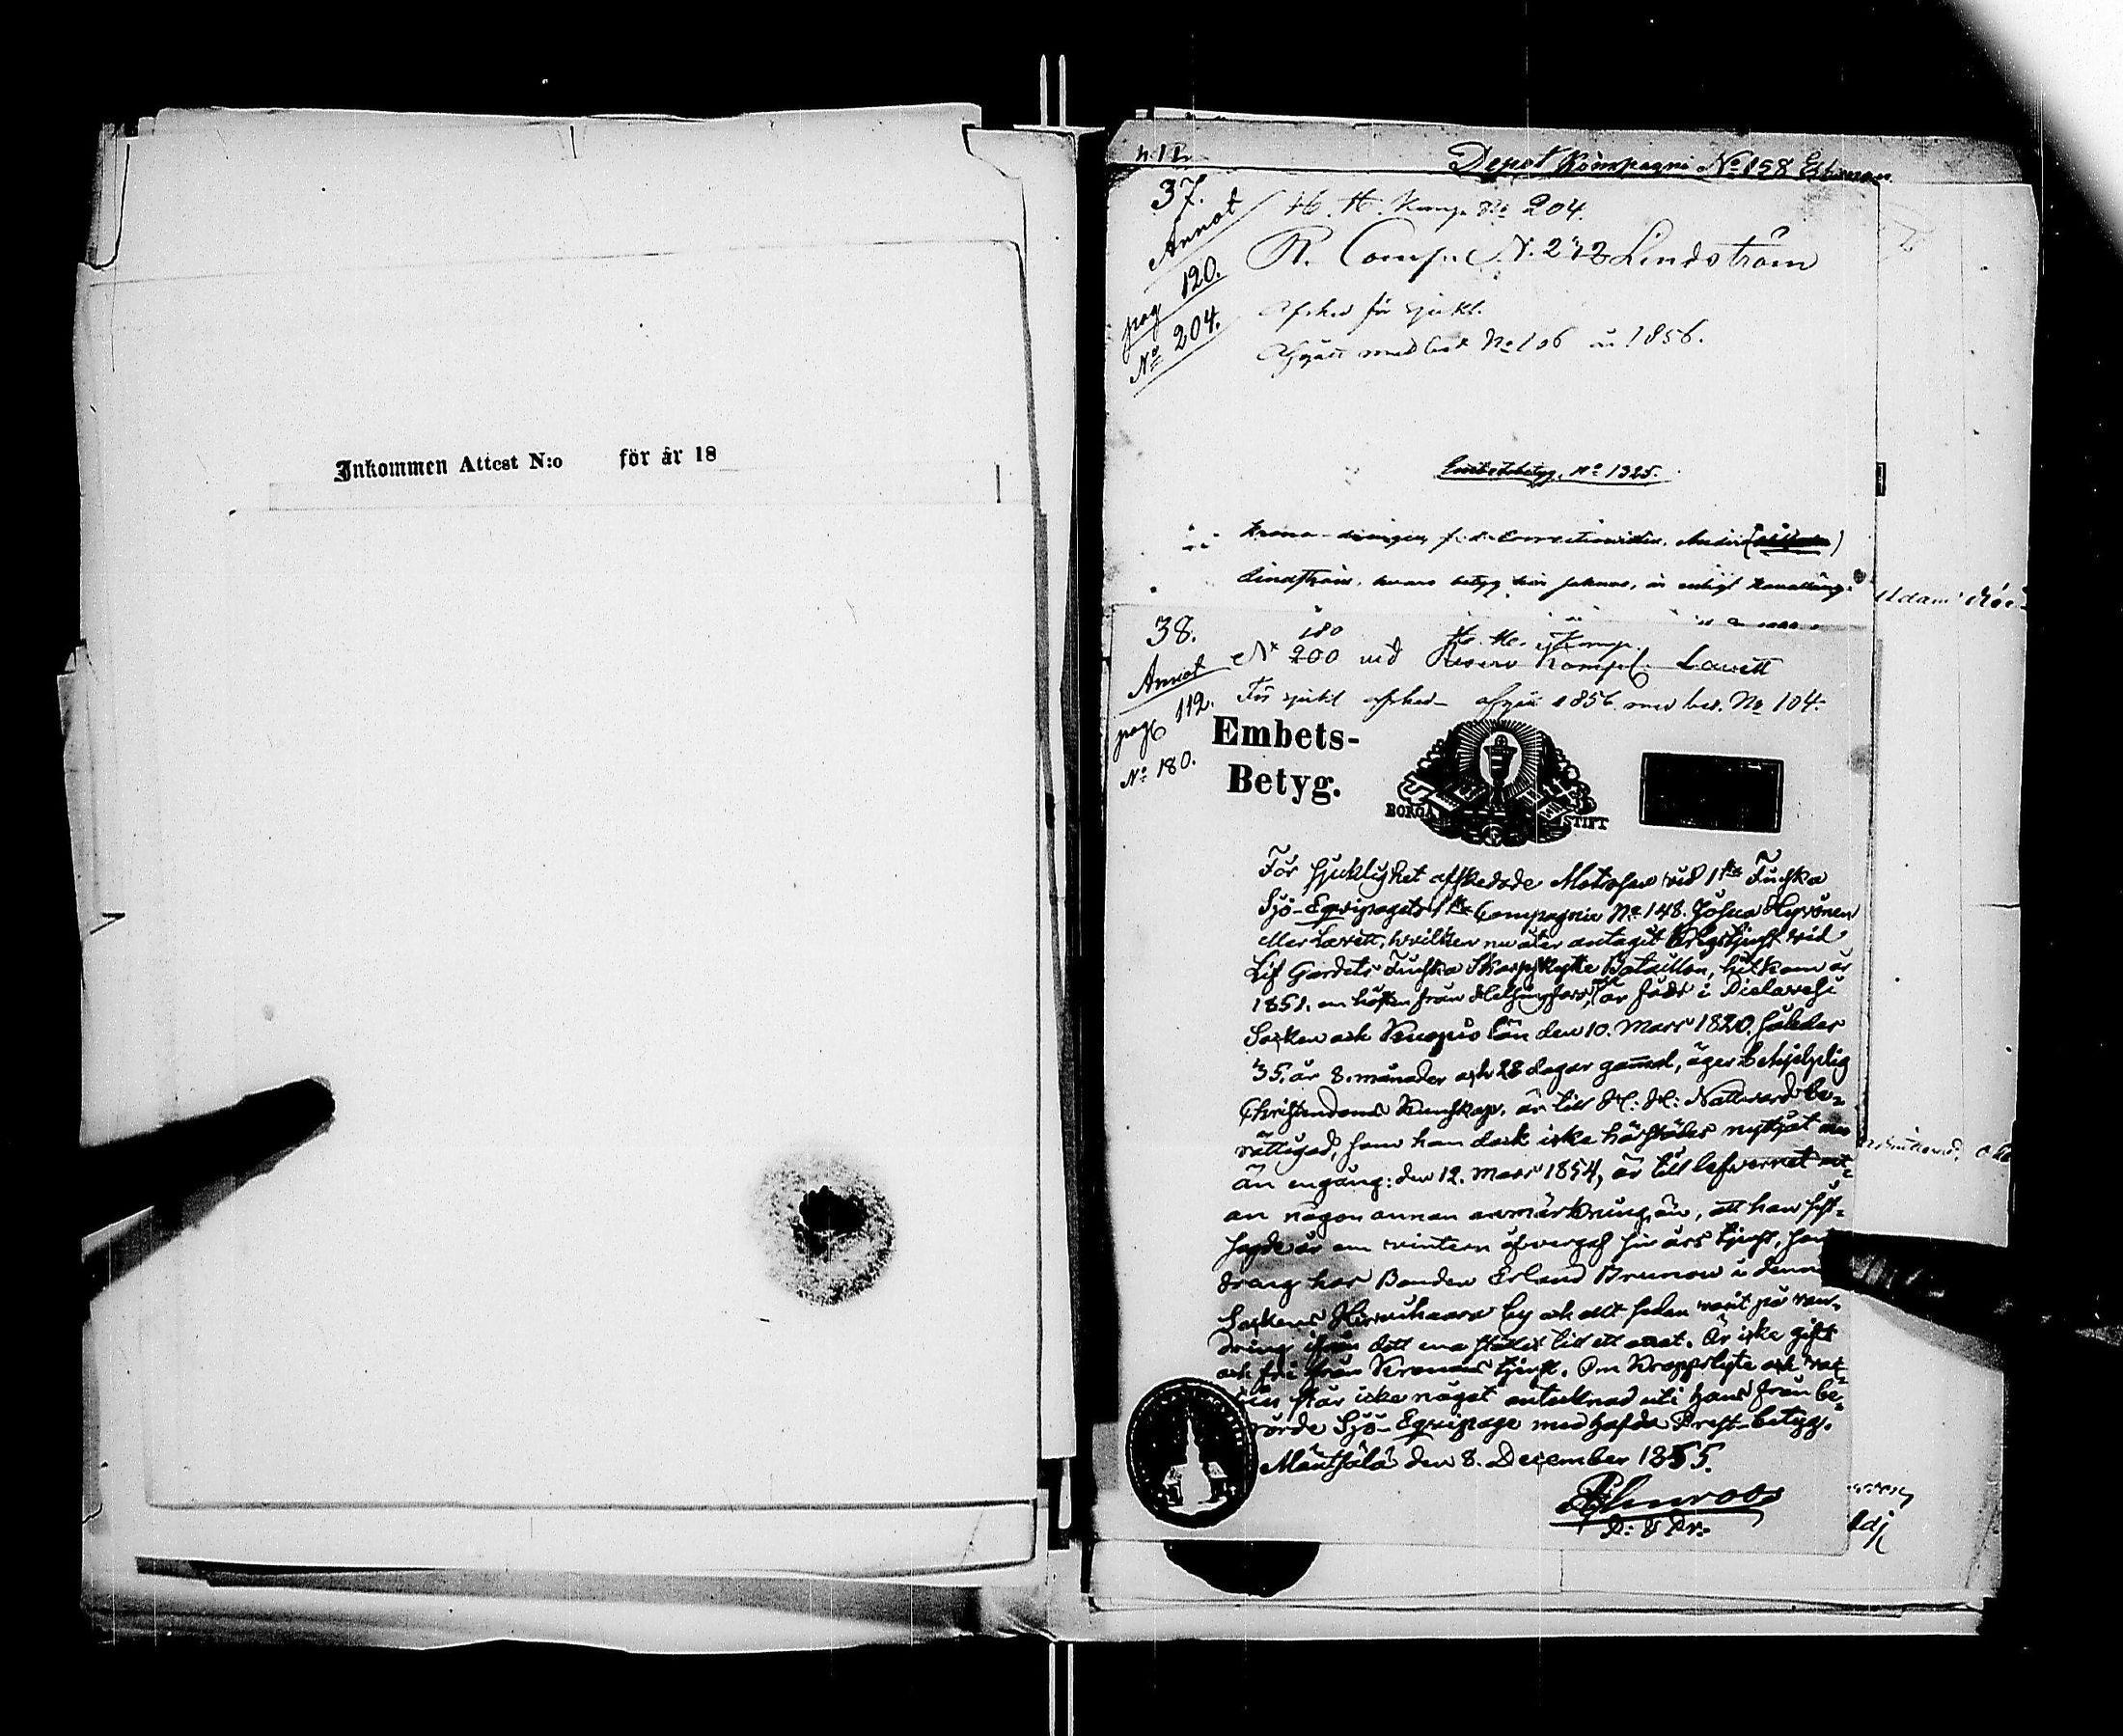 Inkommen Attest N:o för år 18
Depot Kompagni No 198 Ekman
37.
Annot
pag 120.
No 204.
H. H. Komp. No 204.
R. Comp. N. 272 Lindström
Afsked för sjukl.
Afgått med bet No 106 år 1856.
Embetsbetyg, No 1325.
Lindström, hvars betyg här saknas, är enligt
38.
Annot
pag 112.
No 180.
180
No 200 vid Reserv Komp. Lavett
För sjukl afsked afgått 1856 med bet. No 104.
Embets-
Betyg.
BORGÅ STIFT
För sjuklighet afskedade Matrosen vid 1sta Finska
Sjö-Equipagets 1sta Compagnie No 148. Josua Hyvönen
eller Lavett, hvilken nu åter antagit Krigstjenst vid
Lif Gardets Finska Skarpskytte Bataillon, hitkom år
1851. om hösten från Helsingfors, är född i Pielavesi
Socken och Kuopio län den 10. Mars 1820. således
35. år 8. månader och 28 dagar gammal, äger behjelplig
Christendoms Kunskap, är till H: H: Nattvard be-
rättigad, som han dock icke härstädes nyttjat mer
än en gång: den 12. Mars 1854, är till lefvernet ut-
an någon annan anmärkning än, att han sist-
sagde år om vintern öfvergaf sin års tjenst, som
dräng hos Bonden Erland Brunow i denna
Sockens Hirvihaara by och allt sedan varit på van-
dring ifrån dett ena stället till ett annat. Är icke gift
och fri från Kronans tjenst. Om Kroppslyte och vac-
cin står icke något antecknad uti hans från be-
rörde Sjö-Equipage medhafda Prest-betyg.
Mäntsälä den 8. December 1855.